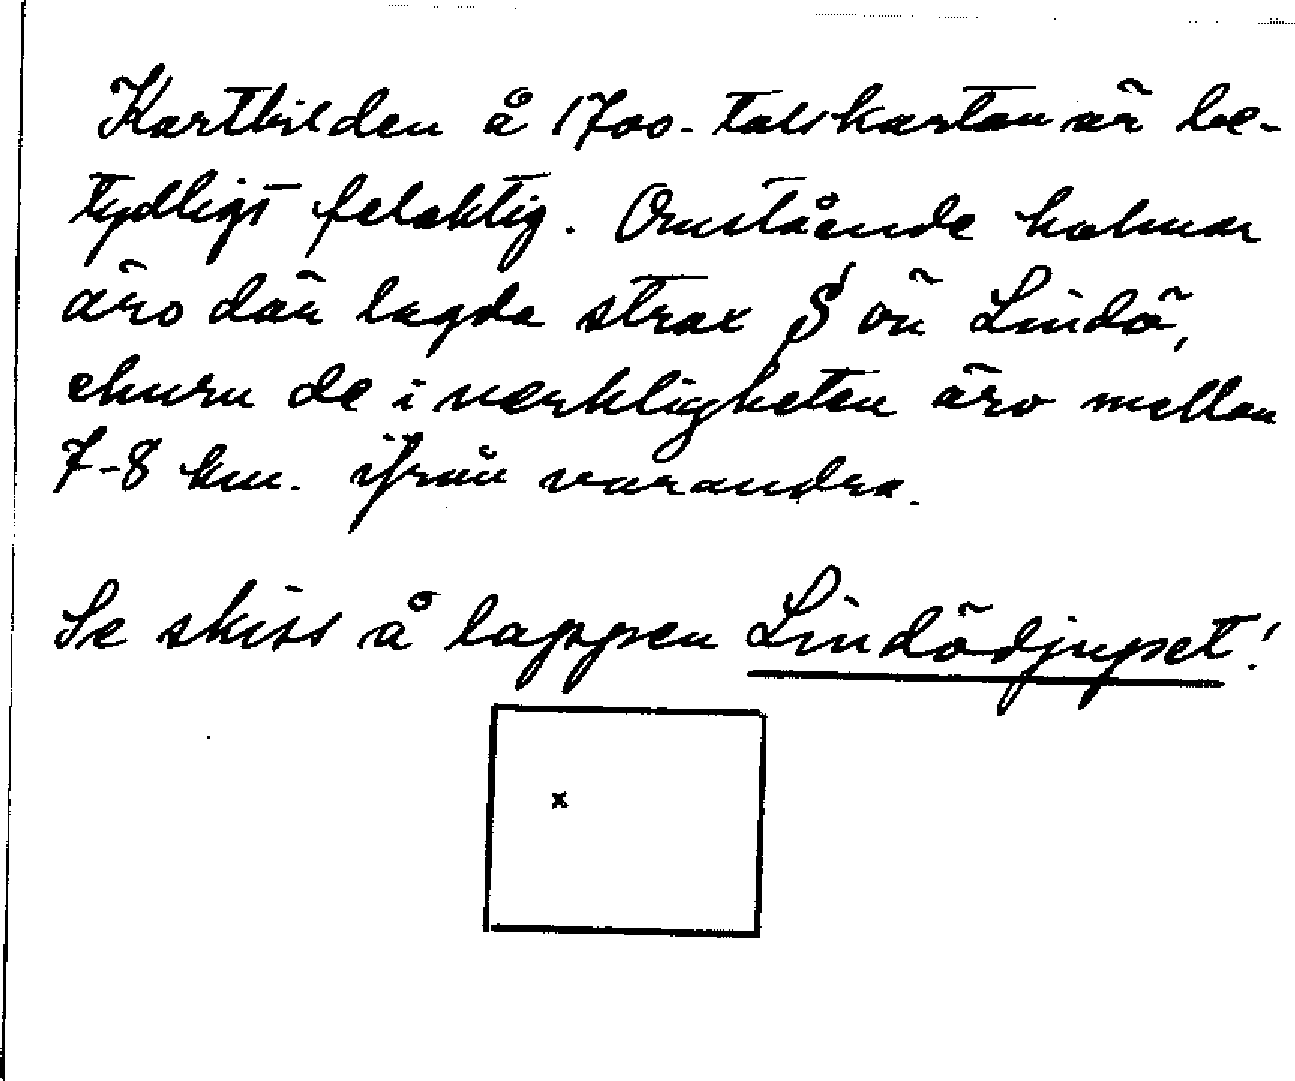 Kartbilden å 1700-talskartan är be-
tydligt felaktig. Omstående holmar
äro där lagda strax S om Lindö,
churu de i verkligheten äro mellan
7-8 km. ifrån varandra.
Se skiss å lappen Lindödjupet!
x